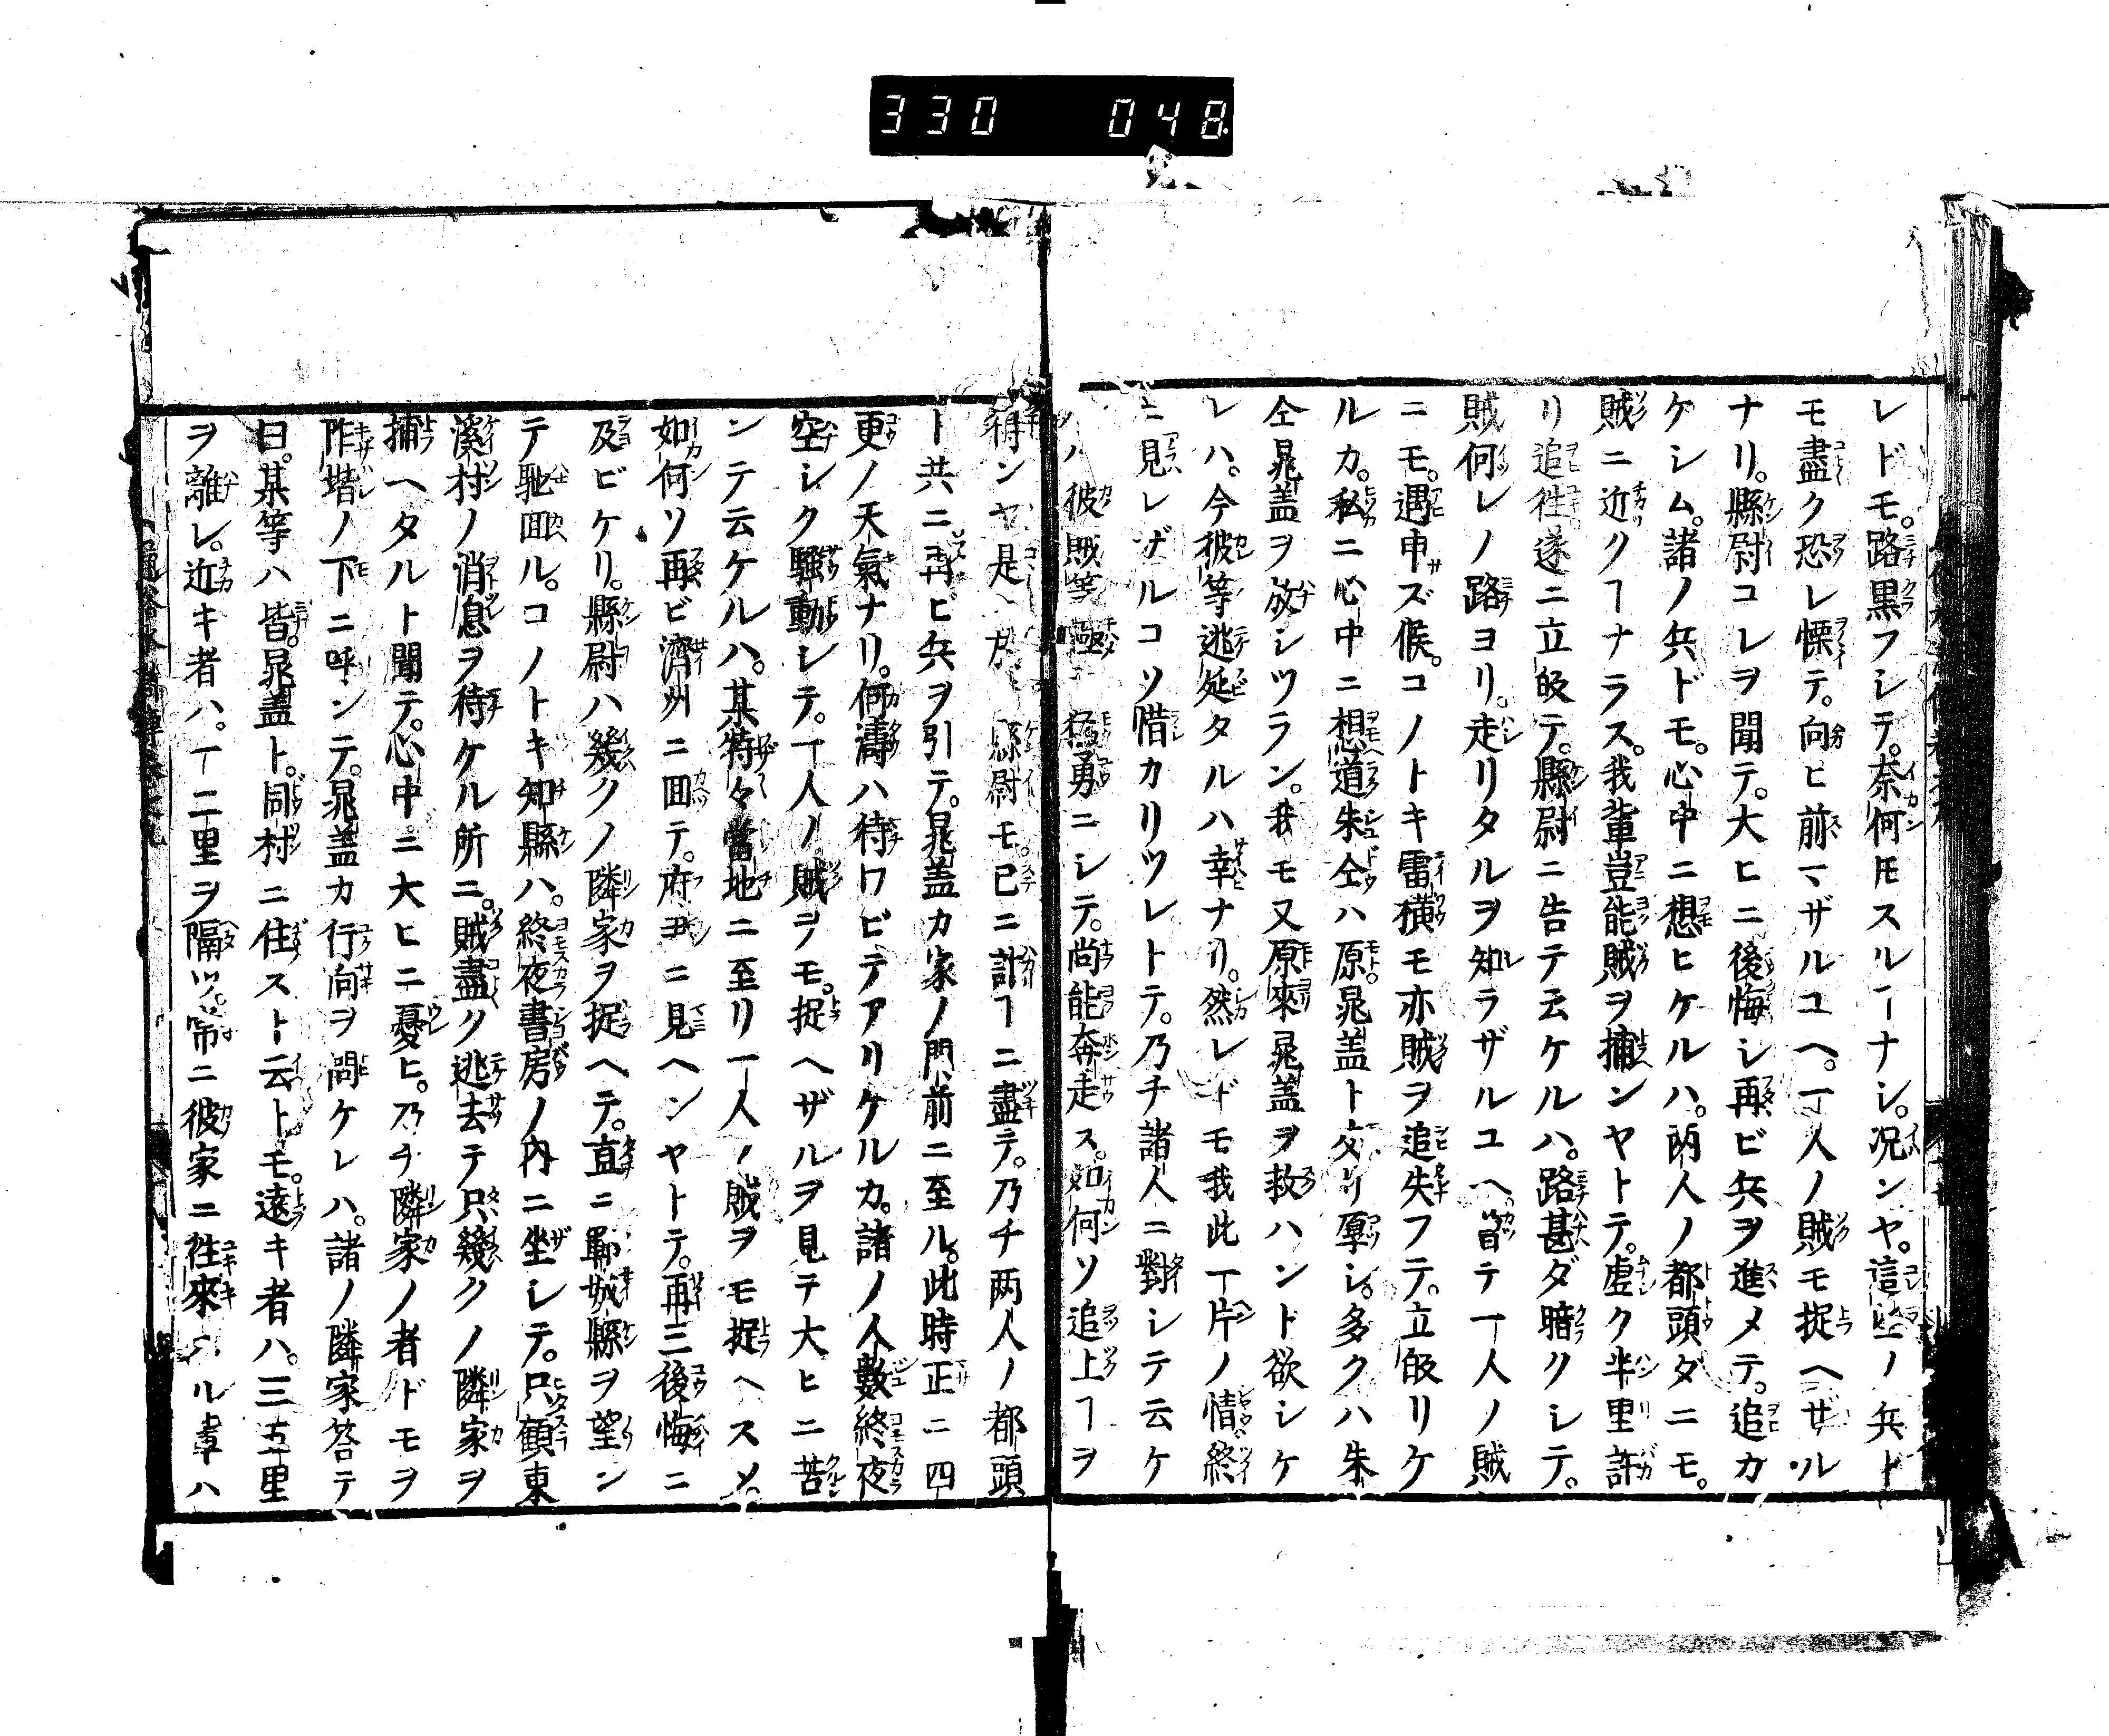 330 048
レドモ。路黒フシテ。奈何トモスルヿナシ。况ンヤ。這些ノ兵ト
モ盡ク恐レ慄テ。向ヒ前マザルユヘ。一人ノ賊モ捉ヘザル
ナリ。縣尉コレヲ聞テ。大ヒニ後悔シ再ビ兵ヲ進メテ。追カ
ケシム。諸ノ兵ドモ。心中ニ想ヒケルハ。両人ノ都頭タニモ。
賊ニ近クヿナラス。我輩豈能賊ヲ捕ンヤトテ。虚ク半里許
リ追徃遂ニ立皈テ。縣尉ニ告テ云ケルハ。路甚ダ暗クシテ。
賊何レノ路ヨリ。走リタルヲ知ラザルユヘ。曾テ一人ノ賊
ニモ。遇申ズ候。コノトキ雷横モ亦賊ヲ追失フテ。立皈リケ
ルカ。私ニ心中ニ想道朱仝ハ原晁盖ト交リ厚シ。多クハ朱
仝晁盖ヲ放シツラン。我モ又原來晁盖ヲ救ハント欲シケ
レハ。今彼等逃延タルハ幸ナリ。然レドモ我此一片ノ情終
ニ見レザルコソ惜カリツレトテ。乃チ諸人ニ對シテ云ケ
ハ彼賊等極 猛勇ニシテ。尚能奔走ス。如何ソ追上ヿヲ
得ンヤ是 縣尉モ。已ニ計ヿニ盡テ。乃チ両人ノ都頭
ト共ニ再ビ兵ヲ引テ。晁盖カ家ノ門前ニ至ル。此時正ニ四
更ノ天氣ナリ。何濤ハ待ワビテアリケルカ。諸ノ人數終夜
空シク騒動シテ。一人ノ賊ヲモ。捉ヘザルヲ見テ大ヒニ苦
ンテ云ケルハ。某特々當地ニ至リ一人ノ賊ヲモ捉ヘスソ。
如何ソ再ビ濟州ニ回テ。府尹ニ見ヘンヤトテ。再三後悔ニ
及ビケリ。縣尉ハ幾クノ隣家ヲ捉ヘテ。直ニ鄆城縣ヲ望ン
テ馳回ル。コノトキ知縣ハ。終夜書房ノ内ニ坐シテ。只顧東
溪村ノ消息ヲ待ケル所ニ。賊盡ク逃去テ只幾クノ隣家ヲ
捕ヘタルト聞テ。心中ニ大ヒニ憂ヒ。乃チ隣家ノ者ドモヲ
階ノ下ニ呼ンテ。晁盖カ行向ヲ問ケレハ。諸ノ隣家答テ
曰。某等ハ皆。晁盖ト。同村ニ住スト云トモ。遠キ者ハ。三五里
ヲ離レ。近キ者ハ。一二里ヲ隔ツ。常ニ彼家ニ徃來スル事ハ